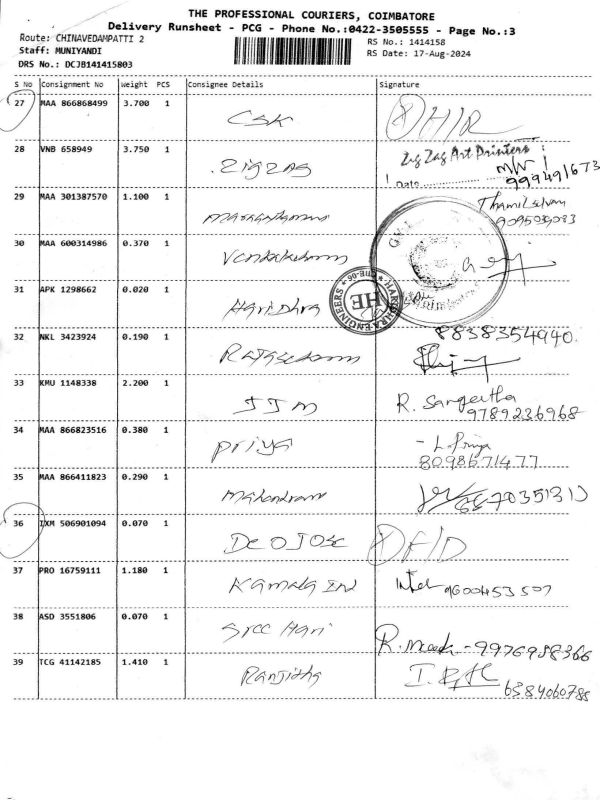 THE PROFESSIONAL COURIERS, COIMBATORE
Delivery Runsheet - PCG - Phone No.:0422-3505555 - Page No.:3
Route: CHINAVEDAMPATTI 2
RS No.: 1414158
Staff: MUNIYANDI
RS Date: 17-Aug-2024
DRS No.: DCJB141415803
S No Consignment No Weight PCS Consignee Details Signature
27 MAA 866868499 3.700 1 CSK H/R
28 VNB 658949 3.750 1 Zigzag Zig Zag Art Printers
M/N
Date 999491673
29 MAA 301387570 1.100 1 Thamilselvan
9095039083
30 MAA 600314986 0.370 1 Venkatesan
31 APK 1298662 0.020 1 Haridhra HARIDHRA ENGINEERS * CBE-06 * HE
8838354940
32 NKL 3423924 0.190 1 Rajasekaran
33 KMU 1148338 2.200 1 JJM R. Sangeetha
9789236968
34 MAA 866823516 0.380 1 Priya - L. Priya
8098671477
35 MAA 866411823 0.290 1 Mahendran
36 IXM 506901094 0.070 1 Deojose
37 PRO 16759111 1.180 1 Kamala Ind 9600453507
38 ASD 3551806 0.070 1 Sree Hari
R. - 9976958366
39 TCG 41142185 1.410 1 Ranjitha
6384060785